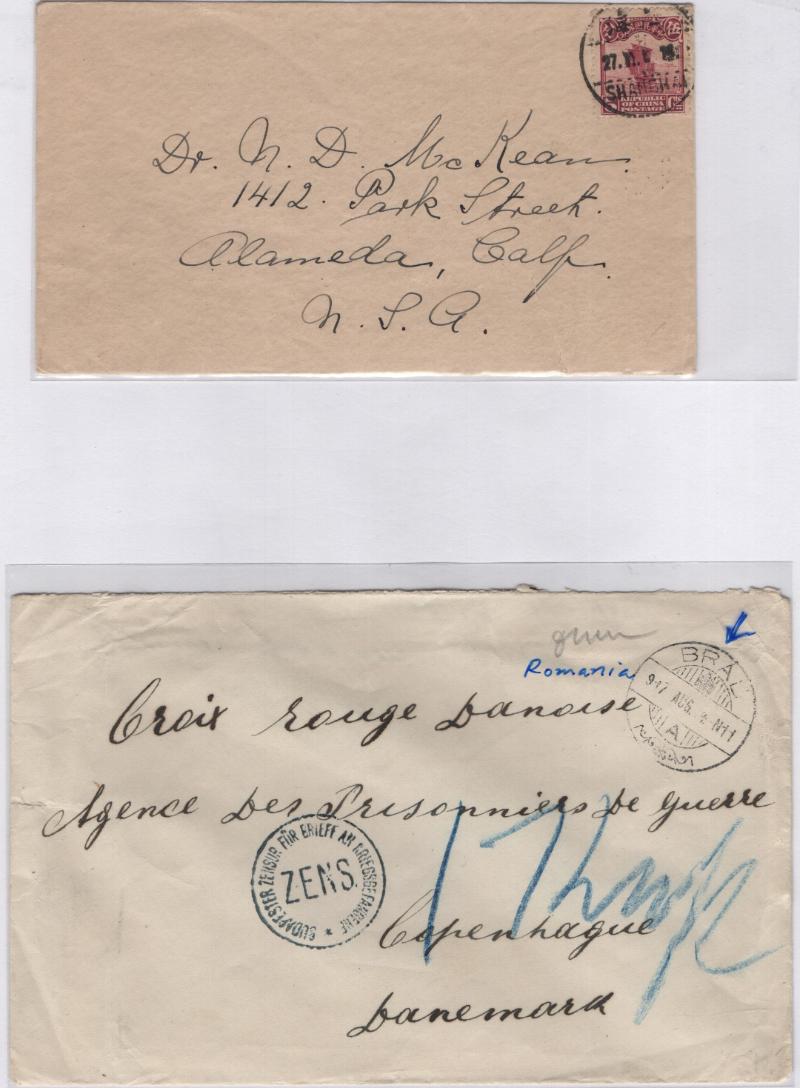 27.
SHANGHAI
REPUBLIC
OF CHINA
POSTAGE
Dr. N. D. McKean.
1412. Park Street.
Alameda, Calf.
U. S. A.
Romania
BRÁL
917 AUG.
A
Croix rouge Danoise
Agence Des Prisonniers De Guerre
BUDAPESTER ZENSUR FÜR BRIEFE AN KRIEGSGEFANGENE *
ZENS.
Copenhague
Danemark